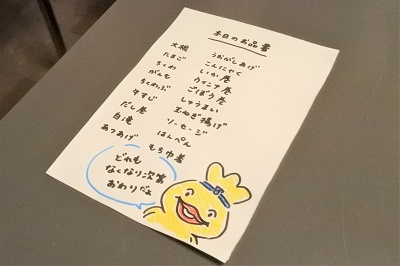 本日のお品書
大根
たまご
ちくわ
がんも
ちくわぶ
牛すじ
だし巻
白滝
あつあげ
うおがしあげ
こんにゃく
いか巻
ウインナ巻
ごぼう巻
しゅうまい
玉ねぎ揚げ
ソーセージ
はんぺん
もち巾着
どれも
なくなり次第
おわりだよ